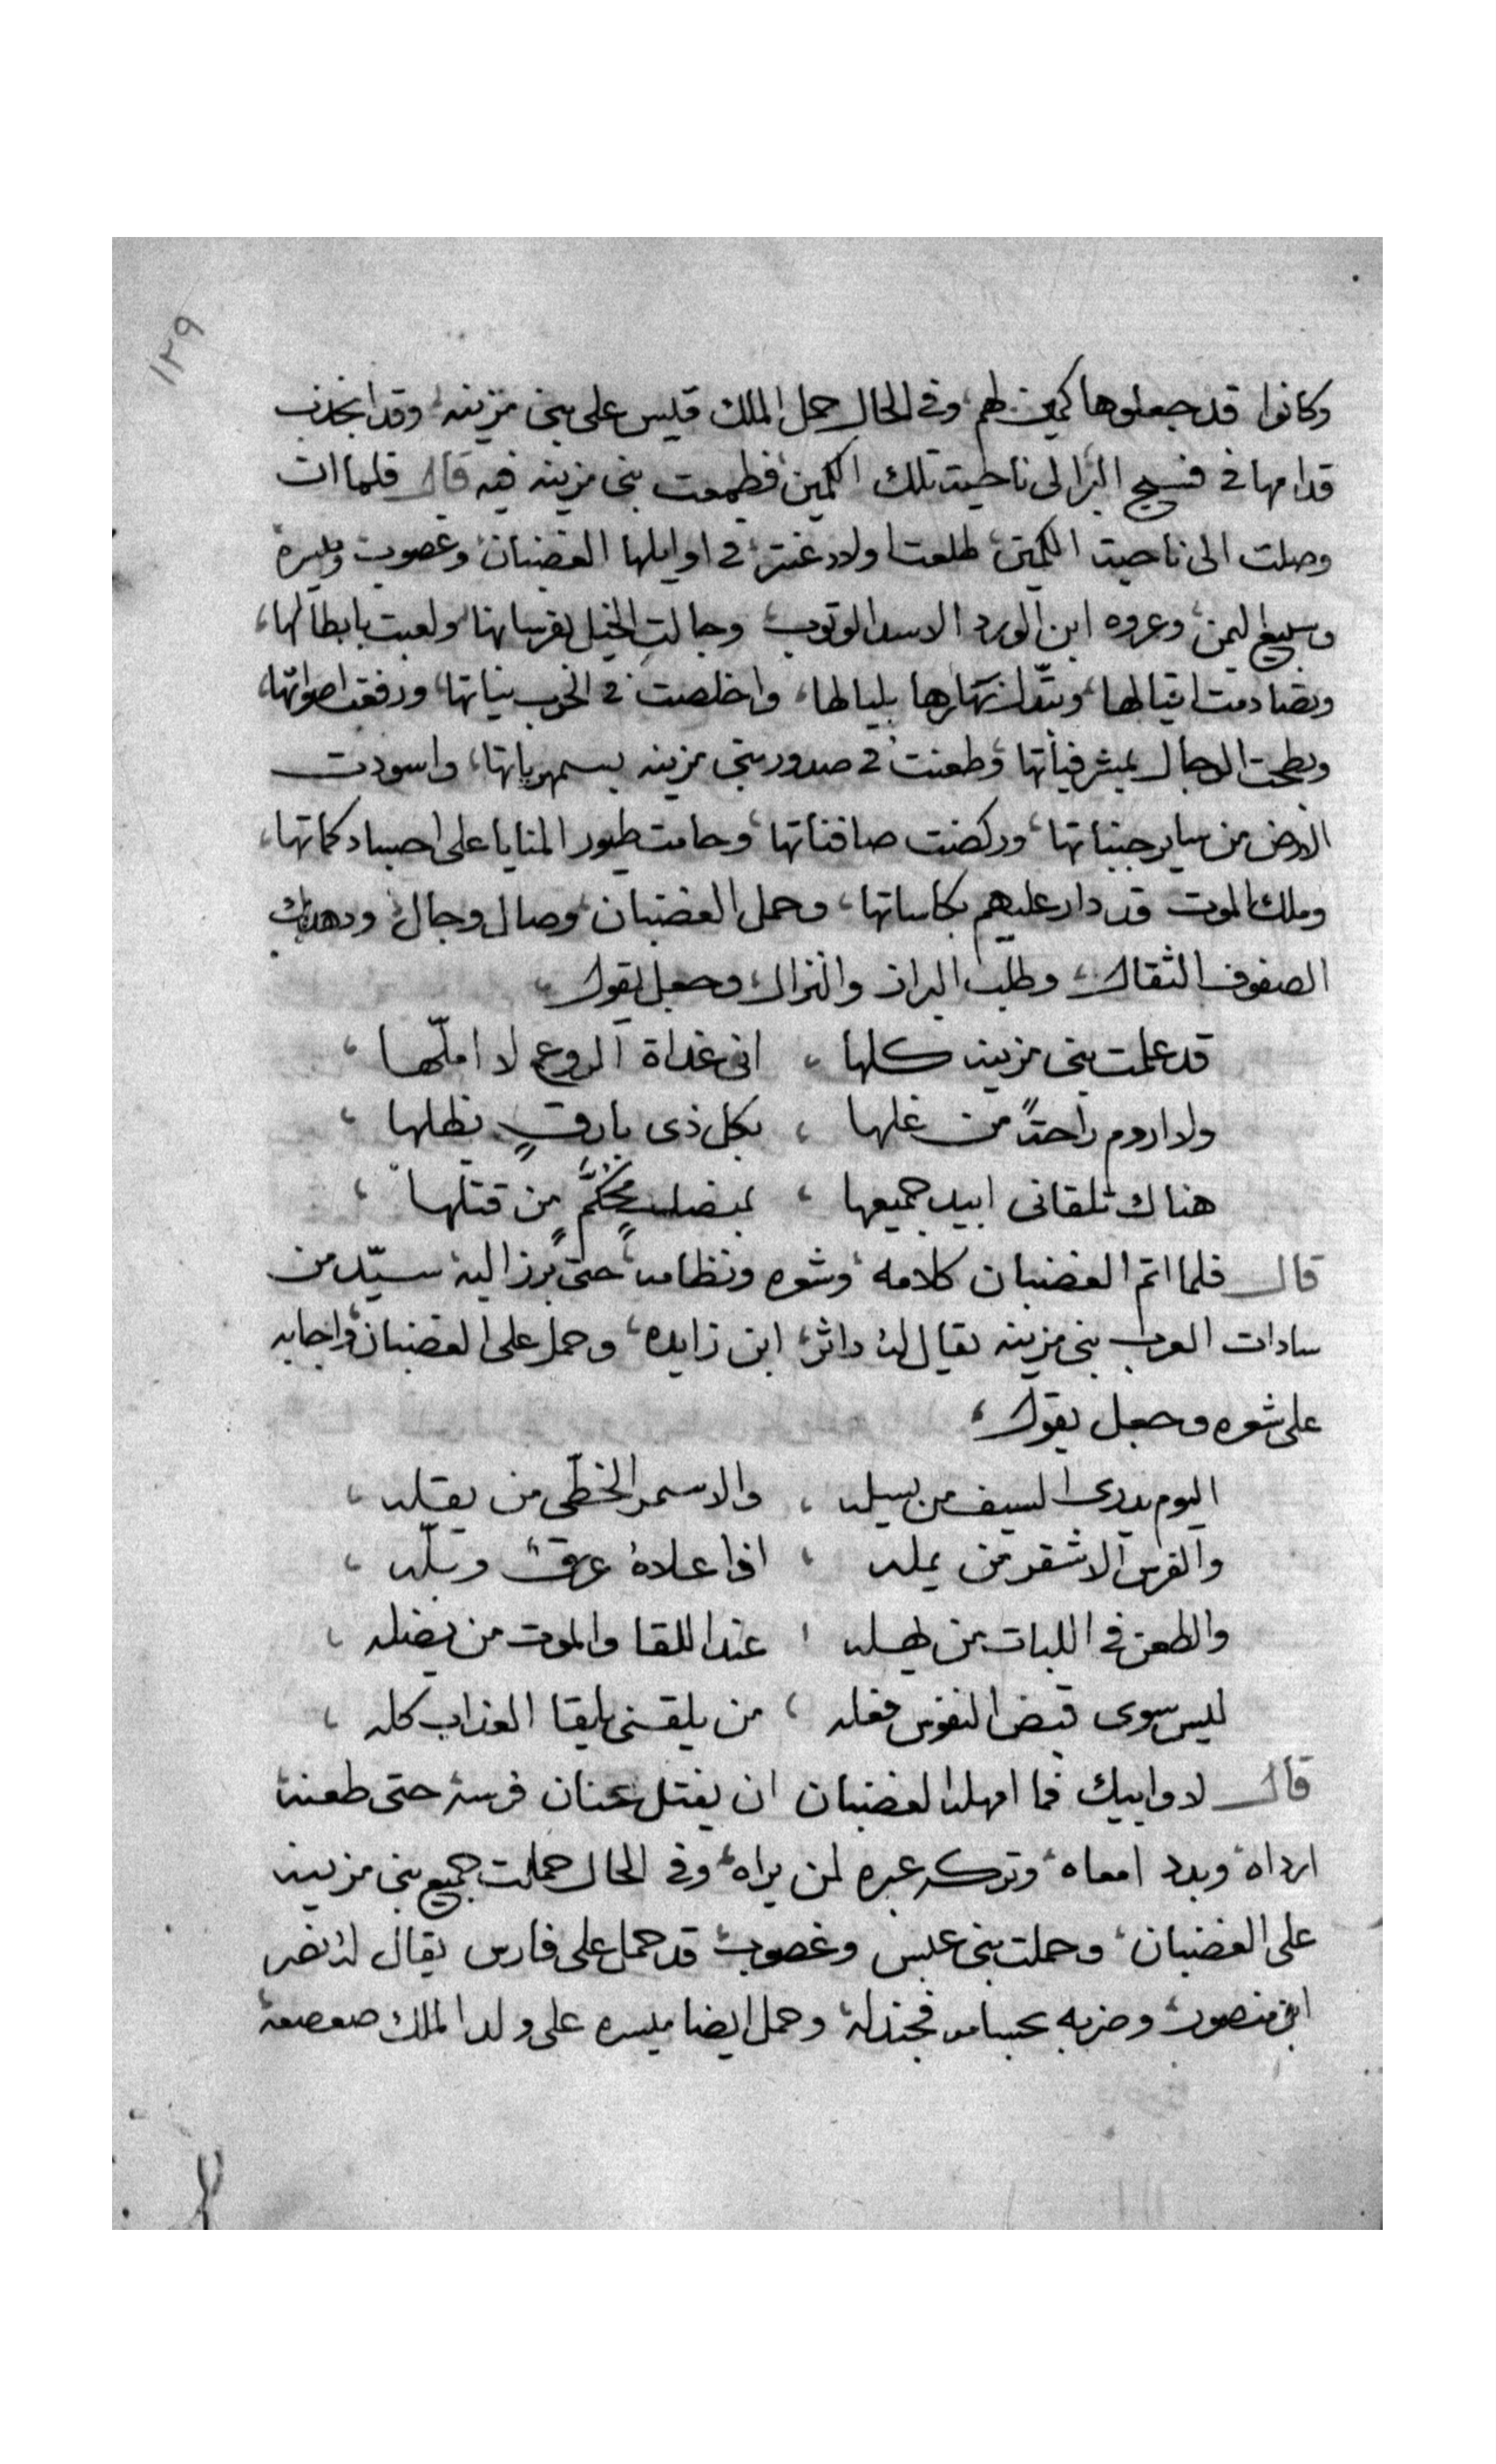 ١٢٩
وكانوا قد جعلوها كمين لهم، وفي الحال حمل الملك قيس على بني مزينه، وقد انجذب
قدامها في فسيح البر الى ناحيت تلك الكمين، فطمعت بني مزينه فيه قال فلما ان
وصلت الى ناحيت الكمين، طلعت اولاد عنتر، في اوايلها الغضبان، وغصوب وميسره
وسبيع اليمن، وعروه ابن الورد الاسد الوثوب، وجالت الخيل بفرسانها، ولعبت بابطالها،
وتصادمت اقيالها، وتبدّل نهارها بليالها، واخلصت في الحرب نياتها، ورفعت اصواتها،
وبطحت الرجال بمشرفياتها، وطعنت في صدور بني مزينه بسمهرياتها، واسودت
الارض من ساير جنباتها، وركضت صافناتها، وحامت طيور المنايا على اجساد كماتها،
وملك الموت قد دار عليهم بكاساتها، وحمل الغضبان، وصال وجال، وهدت
الصفوف الثقال، وطلب البراز والنزال، وجعل يقول،
قد علمت بني مزينه كلها، اني غداة الروع لا املّها،
ولا اروم راحةً من غلها، بكل ذي بارقٍ نظلها،
هناك تلقاني ابيد جميعها، بمنصلٍ محكّمٍ من قتلها،
قال فلما اتم الغضبان كلامه، وشعره ونظامه، حتى برز اليه سيّد من
سادات العرب بني مزينه يقال له، داثر، ابن زايده، وحمل على الغضبان، واجابه
على شعره وجعل يقول،
اليوم يدري السيف من يسله، والاسمر الخطّي من يقله،
والفرس الاشقر من يمله، اذا علاهُ عرقٌ وبلّه،
والطعن في اللبات من يهله، عند اللقا والموت من يضله،
ليس سوى قبض النفوس فعله، من يلقني يلقا العذاب كله،
قال لا وابيك فما امهله الغضبان ان يفتل عنان فرسه حتى طعنه
ارداه، وبدد امعاه، وتركه عبره لمن يراه، وفي الحال حملت جميع بني مزينه
على الغضبان، وحملت بني عبس وغصوب، قد حمل على فارس يقال له نضر
ابن منصور، وضربه بحسامه فجندله، وحمل ايضا ميسره على ولد الملك صعصعه